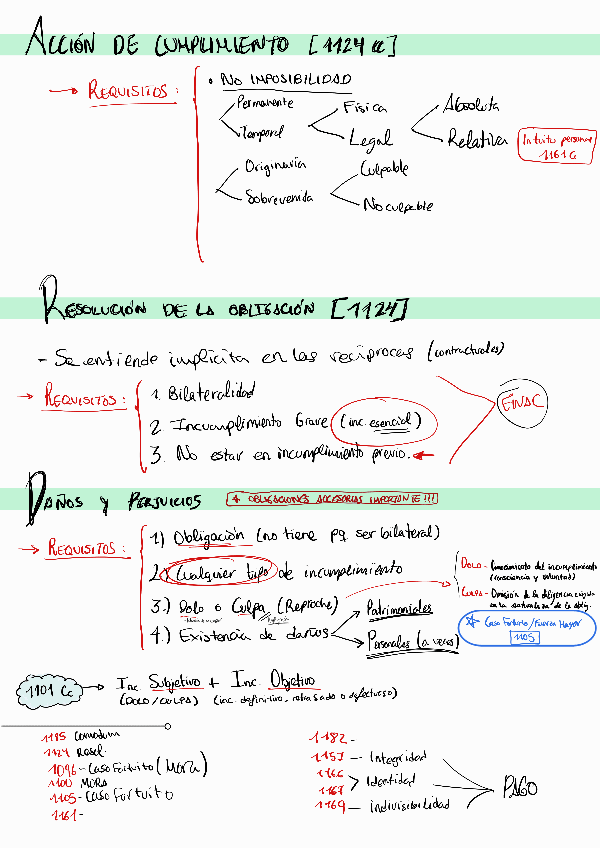 ACCIÓN DE CUMPLIMIENTO [1124 CC]
→ REQUISITOS:
• NO IMPOSIBILIDAD
Permanente
Temporal
Física
Legal
Absoluta
Relativa
Intuito personae
1161 CC
Originaria
Sobrevenida
Culpable
No culpable
RESOLUCIÓN DE LA OBLIGACIÓN [1124]
- Se entiende implícita en las recíprocas (contractuales)
→ REQUISITOS:
1. Bilateralidad
2. Incumplimiento Grave (inc. esencial)
3. No estar en incumplimiento previo.
DAÑOS Y PERJUICIOS
+ OBLIGACIONES ACCESORIAS IMPORTANTE!!!
→ REQUISITOS:
1.) Obligación (no tiene pq. ser bilateral)
2.) Cualquier tipo de incumplimiento
3.) Dolo o Culpa (Reproche)
4.) Existencia de daños
Patrimoniales
Personales (a veces)
DOLO - Conocimiento del incumplimiento
(consciencia y voluntad)
CULPA - Omisión de la diligencia exigida
en la naturaleza de la oblig.
Caso Fortuito/Fuerza Mayor
1105
1101 Cc → Inc. Subjetivo + Inc. Objetivo
(DOLO/CULPA) (inc. definitivo, retrasado o defectuoso)
1185 Comodum
1124 Resol.
1096 - Caso Fortuito (Mora)
1100 MORA
1105 - Caso Fortuito
1161 -
1182 -
1157 - Integridad
1166
1167 > Identidad
1169 - indivisibilidad
PAGO